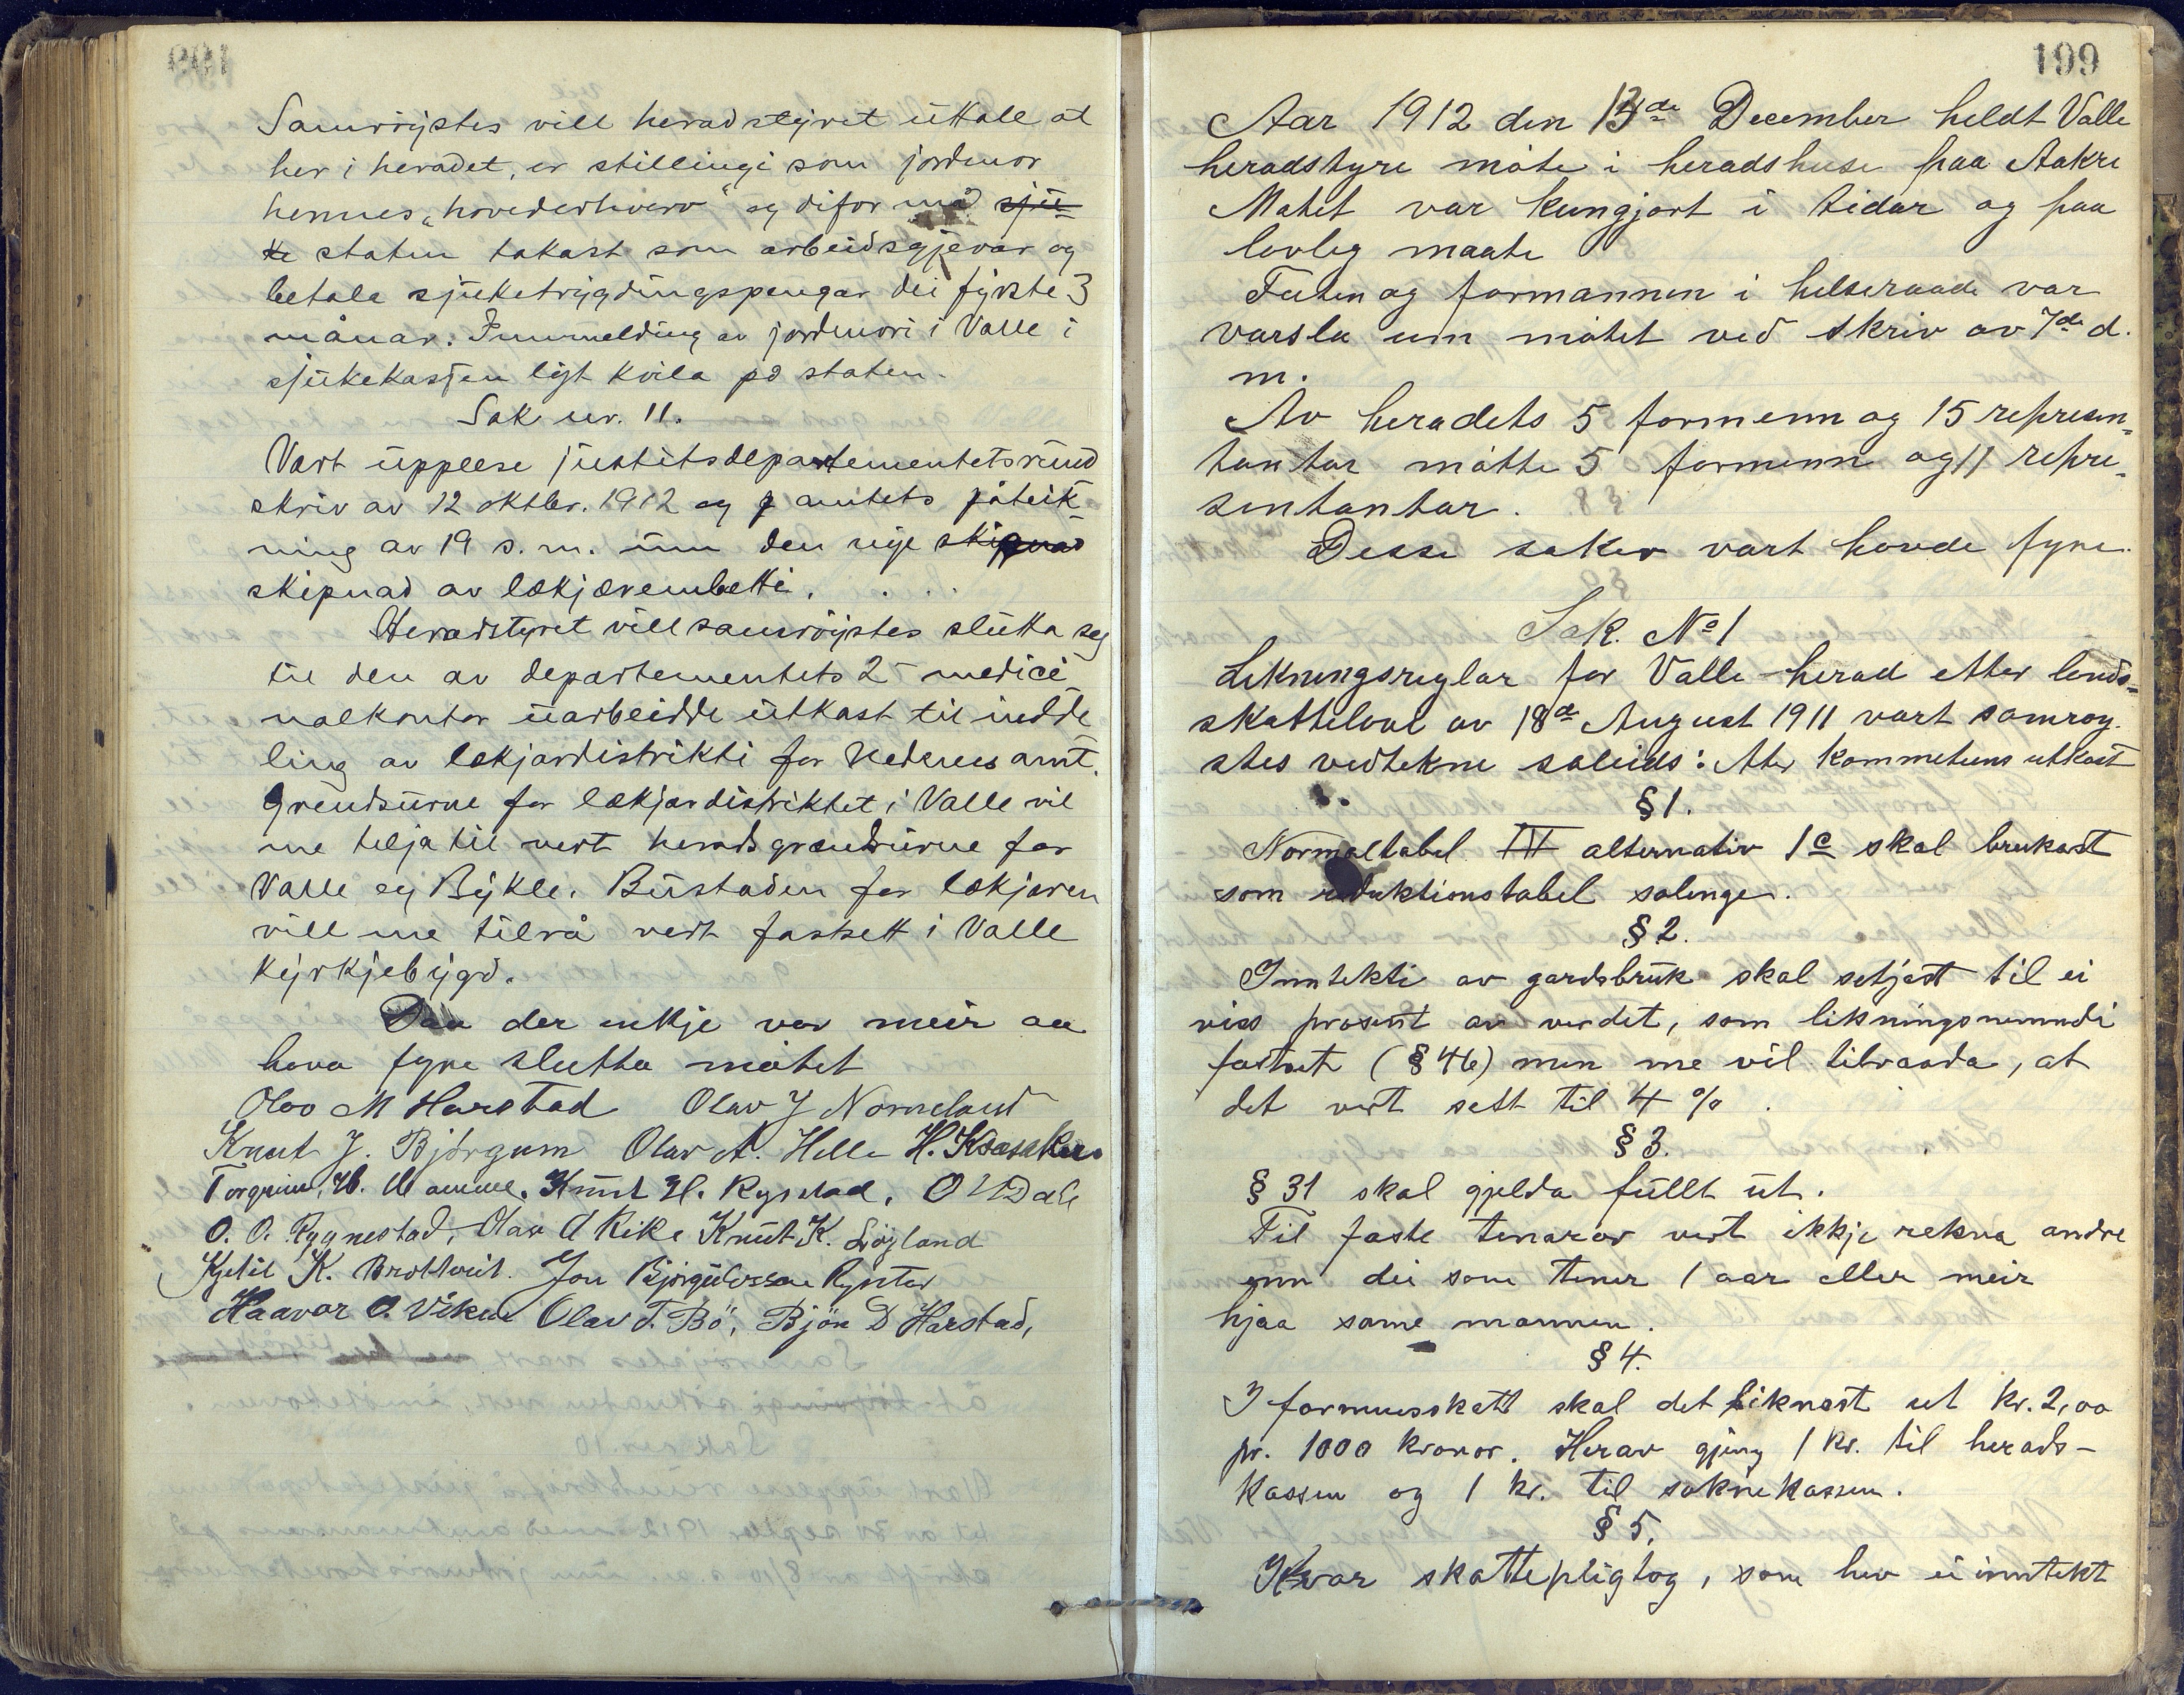 Samröystes vill heradstyret uttale at
her i heradet, er stillingi som jordmor
hennes „hovederhverv" og difor må sju-
ke staten takast som arbeidsgjevar og
betala sjuketrygdingspengar dei fyrste 3
månar. Innmelding av jordmori i Valle i
sjukekassen lyt kvila på staten.
Sak nr. 11.
Vart upplese justitsdepartementets rund
skriv av 12 oktbr. 1912 og amtets påteik-
ning av 19 s. m. um den nye skipnad
skipnad av lækjærembætti.
Heradstyret vill samröystes slutta seg
til den av departementets 2 medici
nalkontor uarbeidde utkast til indde
ling av lækjardistrikti for Nedenes amt.
Grendsurne for lækjardistriktet i Valle vil
me telja til vert heradsgrændsurne for
Valle og Bykle. Bustaden for lækjaren
vill me tilrå vert fastsett i Valle
kyrkjebygd.
Daa der inkje var meir aa
hava fyre slutta mötet
Olav M Harstad Olav J Nomeland
Knut J. Björgum Olav A. Helle H. Kåsaker
Torgrim H. Homme. Knut H. Rysstad. O U Dale
O. O. Rygnestad, Olav A Rike Knut K. Löyland
Kjetil K. Brottveit. Jon Björgulvsson Rysstad
Haavar O. Viken Olav T. Bö, Bjön D Harstad,
199
Aar 1912 den 13de December heldt Valle
heradstyre möte i heradshuse paa Aakre
Møtet var kungjort i tidar og paa
lovleg maate
Futen og formannen i helseraade var
varsla um mötet ved skriv av 7de d.
m.
Av heradets 5 formenn og 15 represen-
tantar mötte 5 formenn og 11 repre-
sentantar.
Desse saker vart havde fyre.
Sak. No 1
Likningsreglar for Valle herad etter lands-
skattelovi av 18de August 1911 vart samröy-
stes vedtekne soleids: etter kommeteens utkast
§ 1.
Normaltabel III alternativ 1c skal brukast
som reduktionstabel solenge.
§ 2.
Inntekti av gardsbruk skal setjast til ei
viss prosent av verdet, som likningsnemndi
fastset (§ 46) men me vil tilraada, at
det vert sett til 4 %.
§ 3.
§ 31 skal gjelda fullt ut.
Til faste tenarar vert ikkje rekna andre
enn dei som tener 1 aar eller meir
hjaa same mannen.
§ 4.
I formuesskatt skal det liknast ut kr. 2,00
pr. 1000 kronor. Herav gjeng 1 kr. til herads-
kassen og 1 kr. til soknekassen.
§ 5.
Kvar skattepligtog, som hev ei inntekt